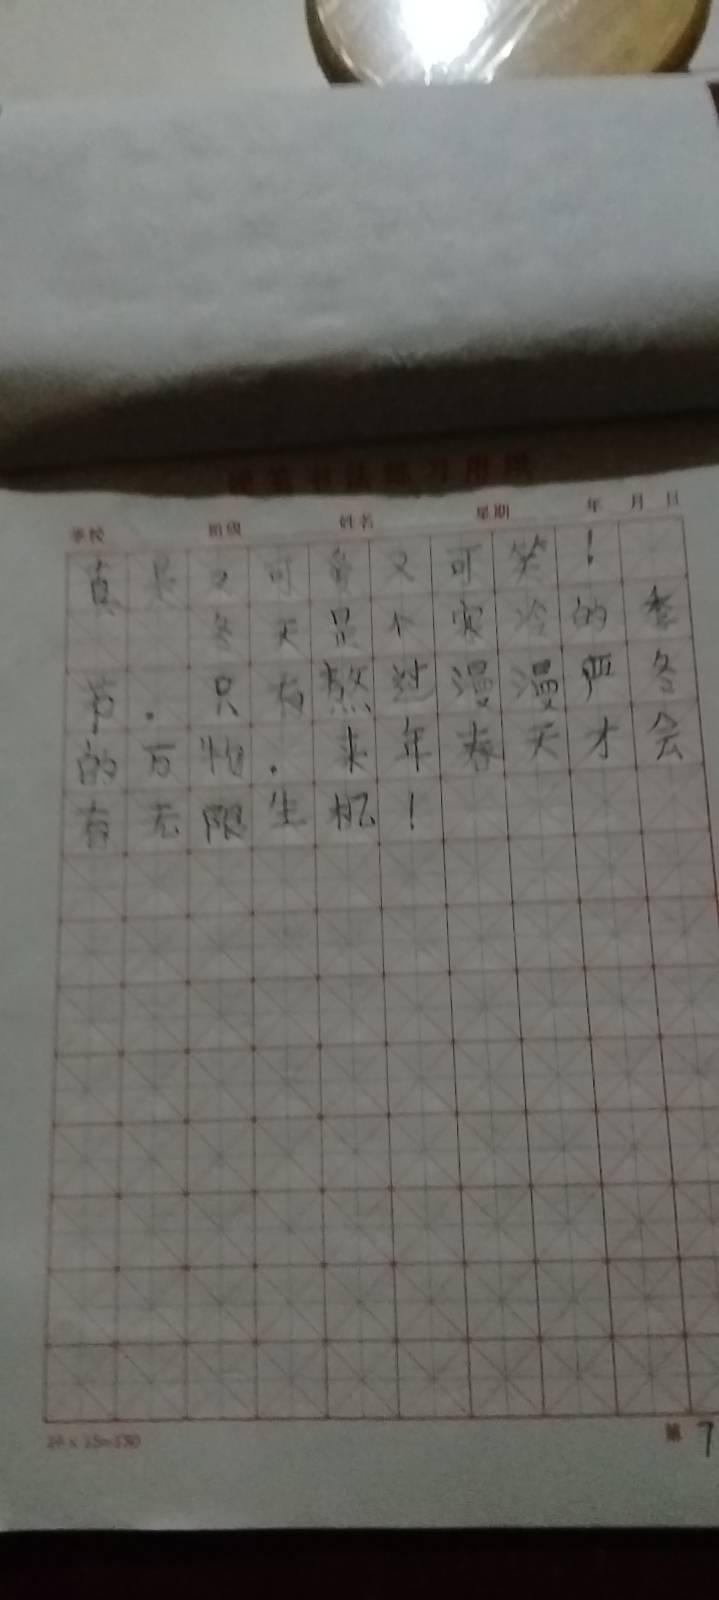 硬笔书法练习用纸
学校 班级 姓名 星期 年 月 日
真是又可爱又可笑！
冬天是个寒冷的季
节.只有熬过漫漫严冬
的万物.来年春天才会
有无限生机！
第 7